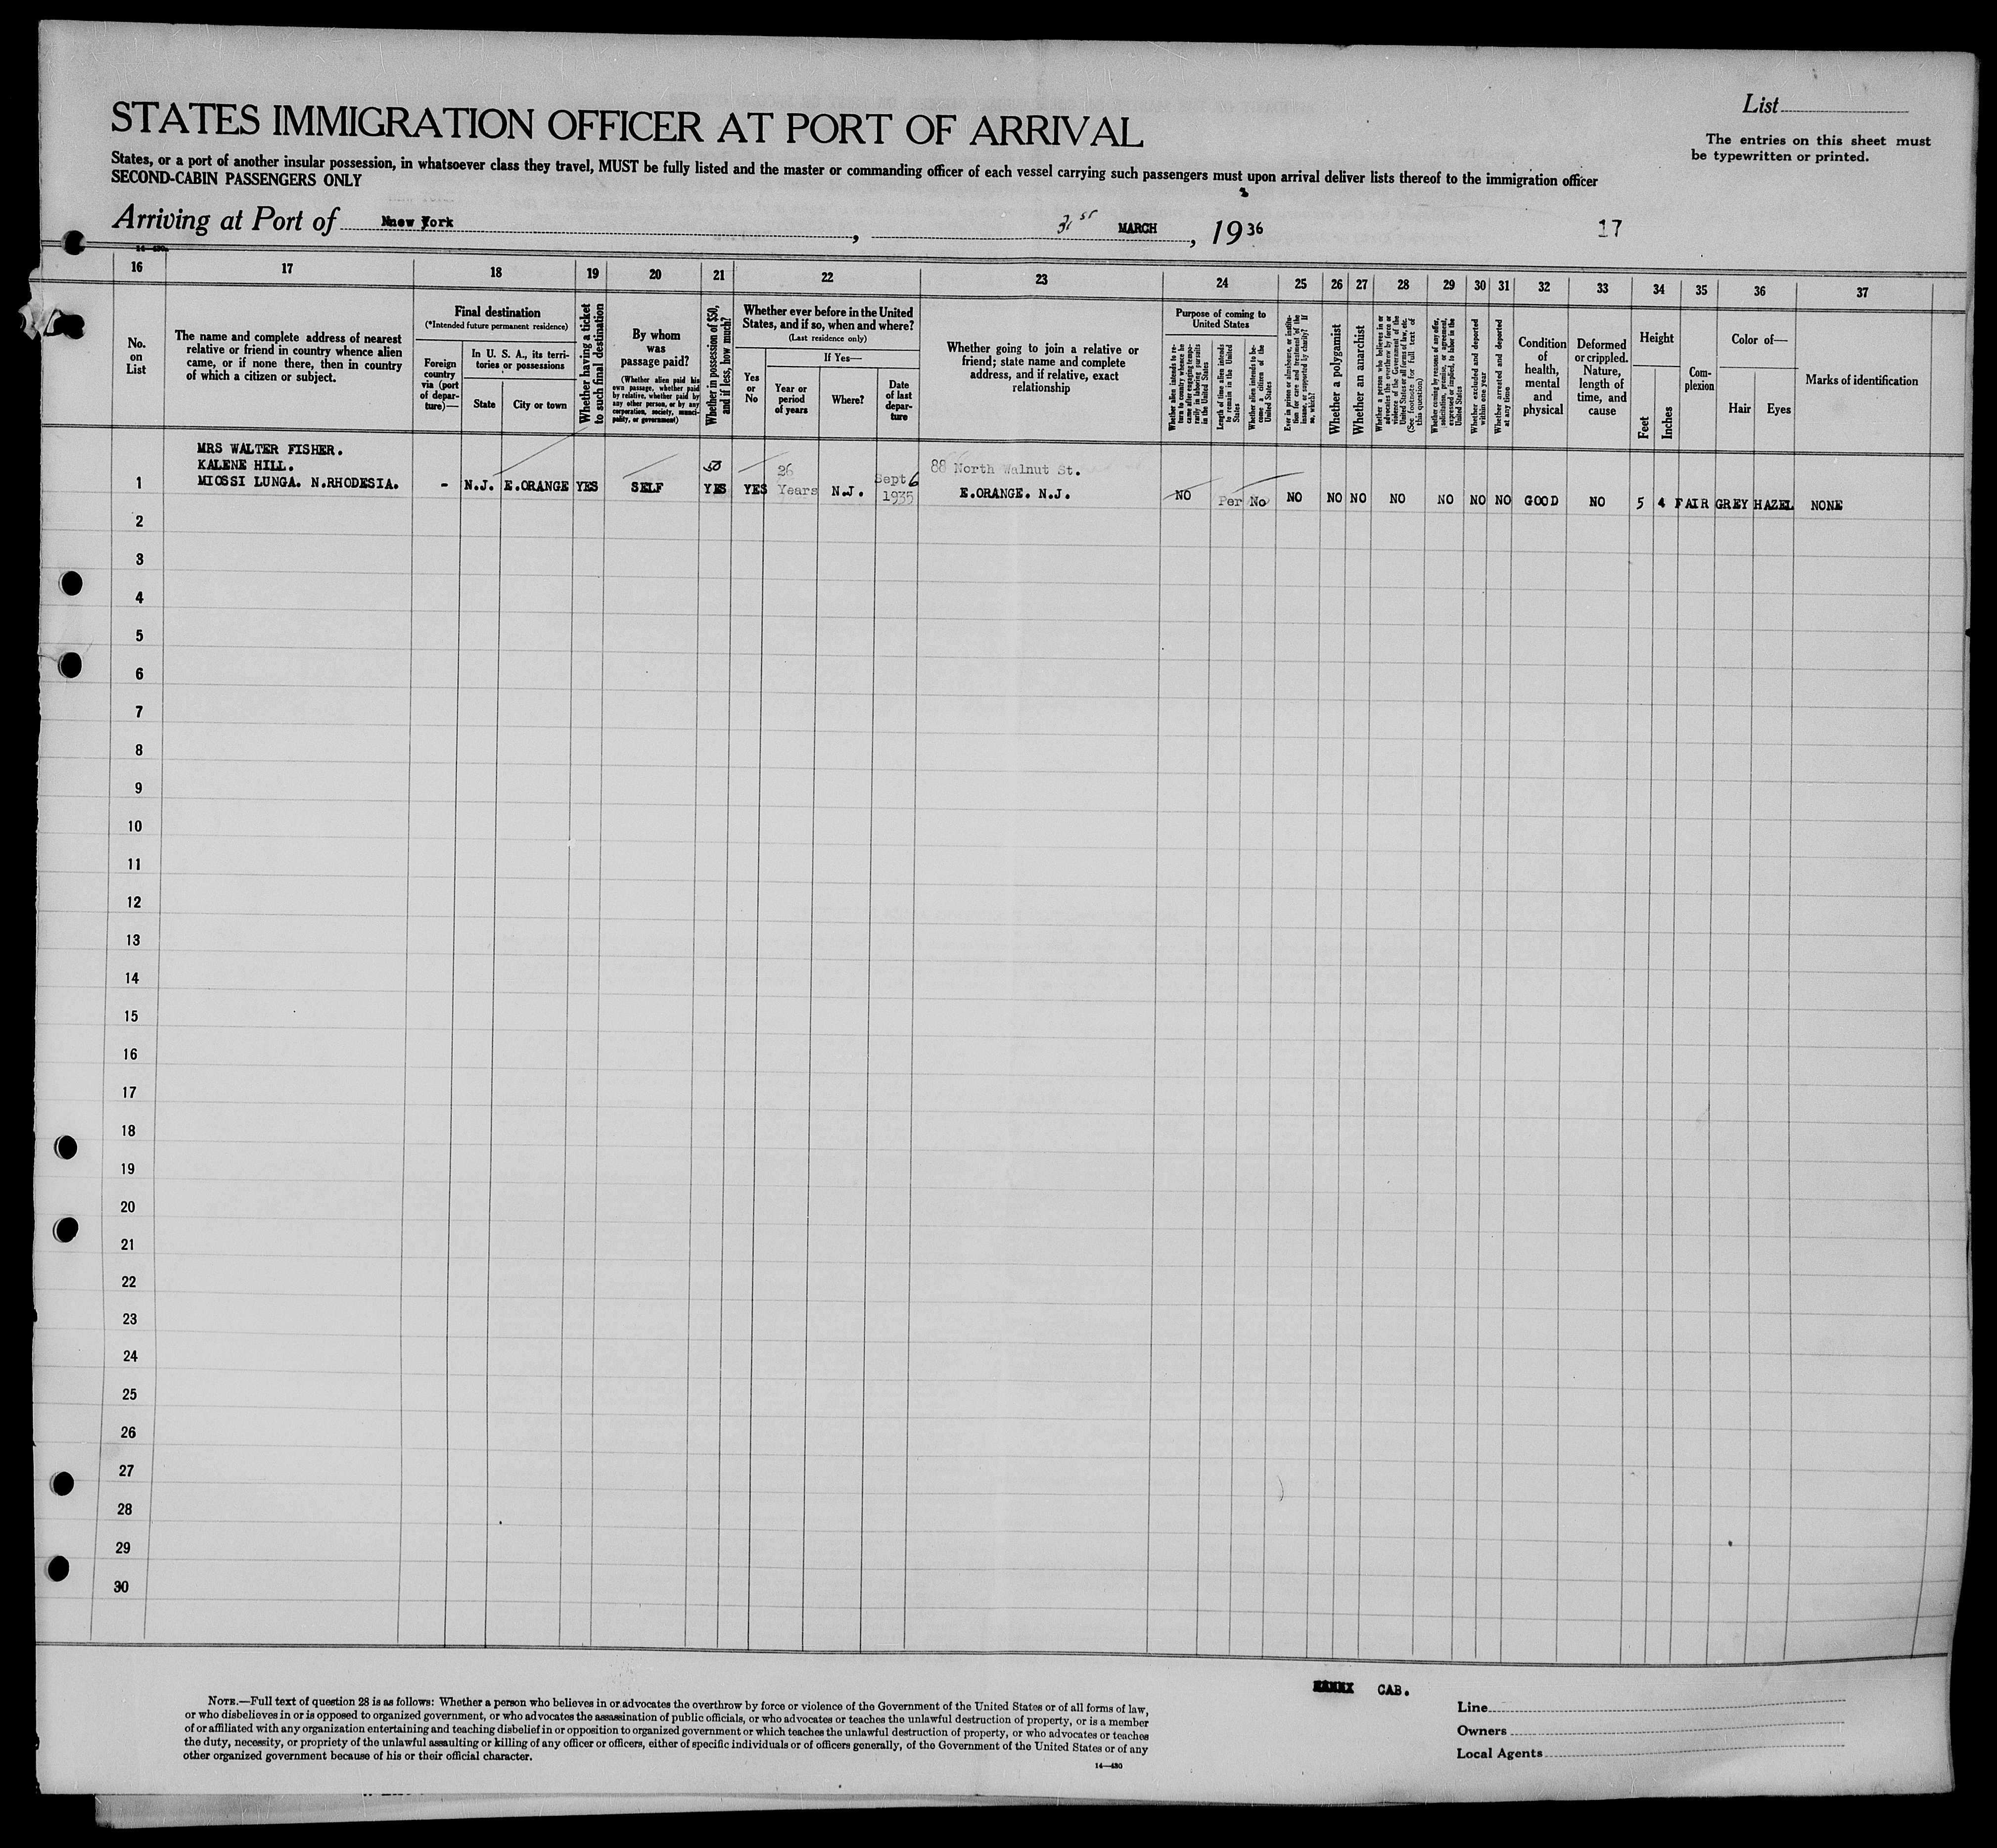 List
STATES IMMIGRATION OFFICER AT PORT OF ARRIVAL
The entries on this sheet must
be typewritten or printed.
States, or a port of another insular possession, in whatsoever class they travel, MUST be fully listed and the master or commanding officer of each vessel carrying such passengers must upon arrival deliver lists thereof to the immigration officer
SECOND-CABIN PASSENGERS ONLY
Arriving at Port of Nnew York, 31st MARCH, 1936 17
14—480
16 17 18 19 20 21 22 23 24 25 26 27 28 29 30 31 32 33 34 35 36 37
No.
on
List
The name and complete address of nearest
relative or friend in country whence alien
came, or if none there, then in country
of which a citizen or subject.
Final destination
(*Intended future permanent residence)
Foreign
country
via (port
of depar-
ture)—
In U. S. A., its terri-
tories or possessions
State
City or town
Whether having a ticket
to such final destination
By whom
was
passage paid?
(Whether alien paid his
own passage, whether paid
by relative, whether paid by
any other person, or by any
corporation, society, munici-
pality, or government)
Whether in possession of $50,
and if less, how much?
Whether ever before in the United
States, and if so, when and where?
(Last residence only)
Yes
or
No
If Yes—
Year or
period
of years
Where?
Date
of last
depar-
ture
Whether going to join a relative or
friend; state name and complete
address, and if relative, exact
relationship
Purpose of coming to
United States
Whether alien intends to re-
turn to country whence he
came after engaging tempo-
rarily in laboring pursuits
in the United States
Length of time alien intends
to remain in the United
States
Whether alien intends to be-
come a citizen of the
United States
Ever in prison or almshouse, or institu-
tion for care and treatment of the
insane, or supported by charity? If
so, which?
Whether a polygamist
Whether an anarchist
Whether a person who believes in or
advocates the overthrow by force or
violence of the Government of the
United States or all forms of law, etc.
(See footnote for full text of
this question)
Whether coming by reasons of any offer,
solicitation, promise, or agreement,
expressed or implied, to labor in the
United States
Whether excluded and deported
within one year
Whether arrested and deported
at any time
Condition
of
health,
mental
and
physical
Deformed
or crippled.
Nature,
length of
time, and
cause
Height
Feet
Inches
Com-
plexion
Color of—
Hair
Eyes
Marks of identification
MRS WALTER FISHER.
KALENE HILL. 50 26 88 North Walnut St.
1 MIOSSI LUNGA. N.RHODESIA. - N.J. E.ORANGE YES SELF YES YES Years N.J. Sept 6 1935 E.ORANGE. N.J. NO Per No NO NO NO NO NO NO NO GOOD NO 5 4 FAIR GREY HAZEL NONE
2
3
4
5
6
7
8
9
10
11
12
13
14
15
16
17
18
19
20
21
22
23
24
25
26
27
28
29
30
CAB.
NOTE.—Full text of question 28 is as follows: Whether a person who believes in or advocates the overthrow by force or violence of the Government of the United States or of all forms of law,
or who disbelieves in or is opposed to organized government, or who advocates the assassination of public officials, or who advocates or teaches the unlawful destruction of property, or is a member
of or affiliated with any organization entertaining and teaching disbelief in or opposition to organized government or which teaches the unlawful destruction of property, or who advocates or teaches
the duty, necessity, or propriety of the unlawful assaulting or killing of any officer or officers, either of specific individuals or of officers generally, of the Government of the United States or of any
other organized government because of his or their official character.
14—480
Line
Owners
Local Agents